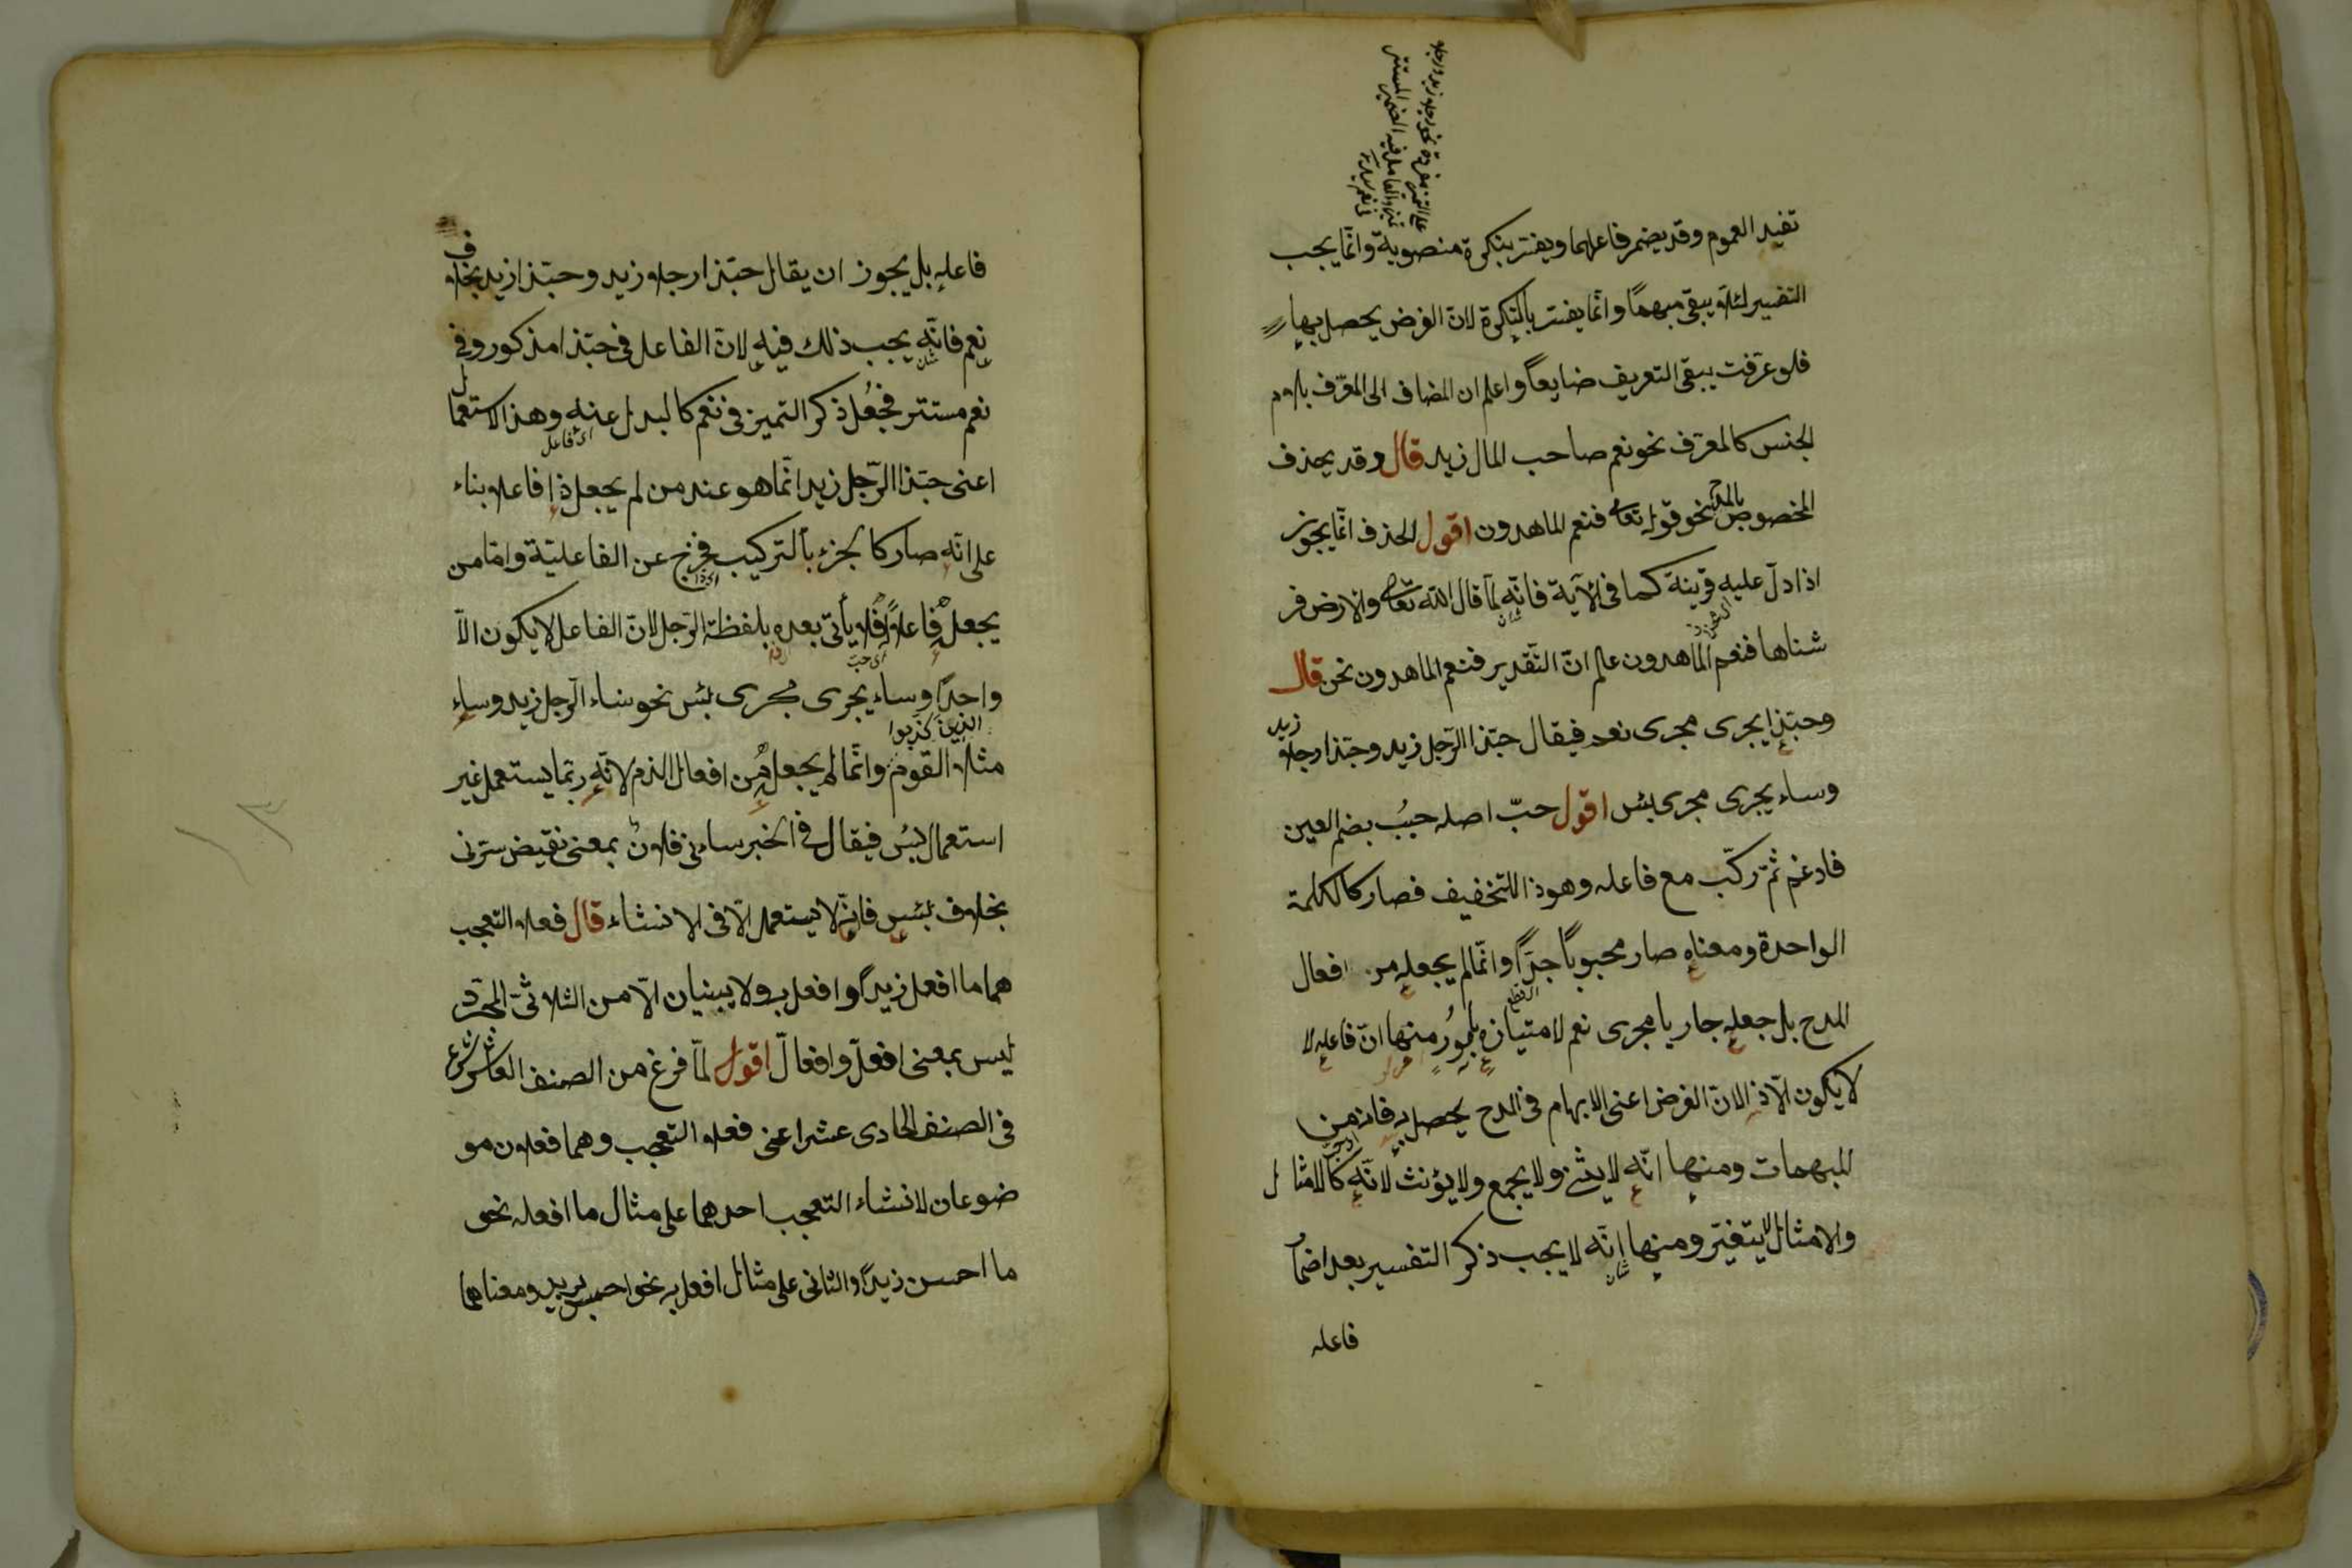 تفيد العموم وقد يضمر فاعلهما ويفسّر بنكرة منصوبة وانّما يجب
التفسير لئلّا يبقى مبهمًا وانّما يفسّر بالنّكرة لانّ الغرض يحصل بها
فلو عرّفت يبقى التعريف ضايعًا واعلم ان المضاف الى المعرّف بلام
الجنس كالمعرّف نحو نعم صاحب المال زيد قال وقد يحذف
المخصوص بالمدح نحو قوله تعالى فنعم الماهدون اقول الحذف انّما يجوز
اذا دلّ عليه قرينة كما فى الآية فانّه لمّا قال الله تعالى والارض فر
شناها فنعم الماهدون علم انّ التّقدير فنعم الماهدون نحن قال
وحبّذا يجرى مجرى نعم فيقال حبّذا الرّجل زيد وحبّذا رجلا زيد
وساء يجرى مجرى بئس اقول حبّ اصله حبُب بضم العين
فادغم ثمّ ركّب مع فاعله وهو ذا للتخفيف فصار كالكلمة
الواحدة ومعناه صار محبوبًا جدًّا وانّما لم يجعله من افعال
المدح بل جعله جاريا مجرى نعم لامتيازه بامورٍ منها انّ فاعله لا
لا يكون الّا ذا لانّ الغرض اعنى الابهام فى المدح يحصل به فانه من
المبهمات ومنها انّه لا يثنى ولا يجمع ولا يؤنث لانّه كالامثال
والامثال لا يتغيّر ومنها انّه لا يجب ذكر التفسير بعد اضمار
فاعله
فاعله بل يجوز ان يقال حبّذا رجلا زيد وحبّذا زيد بخلاف
نعم فانّه يجب ذلك فيه لانّ الفاعل فى حبّذا مذكور وفى
نعم مستتر فجُعل ذكر التميز فى نعم كالبدل عنه وهذا الاستعمال
اى فاعل
اعنى حبّذا الرّجل زيد انّما هو عند من لم يجعل ذا فاعلا بناء
على انّه صار كالجزء بالتركيب فخرج عن الفاعليّة وامّا من
يجعله فاعلًا فلا يأتى بعده بلفظة الرّجل لانّ الفاعل لا يكون الّا
واحدًا وساء يجرى مجرى بئس نحو ساء الرّجل زيد وساء
الذين كذبوا
مثلا القوم وانّما لم يجعله من افعال الذم لانّه ربّما يستعمل غير
استعمال بئس فيقال فى الخبر ساءنى فلانٌ بمعنى نقيض سرّنى
بخلاف بئس فانّه لا يستعمل الّا فى الانشاء قال فعلا التعجب
هما ما افعل زيدًا وافعل به ولا يبنيان الّا من الثلاثىّ المجرّد
ليس بمعنى افعلّ وافعالّ اقول لمّا فرغ من الصنف العاشر شرع
فى الصنف الحادى عشر اعنى فعلا التعجب وهما فعلان مو
ضوعان لانشاء التعجب احدهما على مثال ما افعله نحو
ما احسن زيدًا والثانى على مثال افعل به نحو احسن بزيد ومعناهما